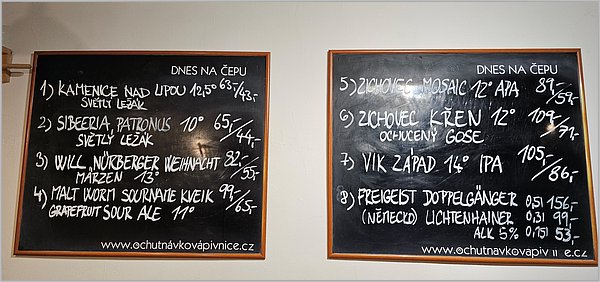 DNES NA ČEPU
1) KAMENICE NAD LIPOU 12,5° 63,-/43,-
SVĚTLÝ LEŽÁK
2) SIBEERIA, PATRONUS 10° 65,-/44,-
SVĚTLÝ LEŽÁK
3) WILL, NÜRBERGER WEIHNACHT 82,-/55,-
MÄRZEN 13°
4) MALT WORM SOURNAME KVEIK 99,-/65,-
GRATEFRUIT SOUR ALE 11°
www.ochutnávkovápivnice.cz
DNES NA ČEPU
5) ZICHOVEC MOSAIC 12° APA 89,-/59,-
6) ZICHOVEC KŘEN 12° 109,-/71,-
OCHUCENÝ GOSE
7) VIK ZÁPAD 14° IPA 105,-/86,-
8) FREIGEIST DOPPELGÄNGER 0,5l 156,-
(NĚMECKO) LICHTENHAINER 0,3l 99,-
ALK 5% 0,15l 53,-
www.ochutnávkovápiv e.cz